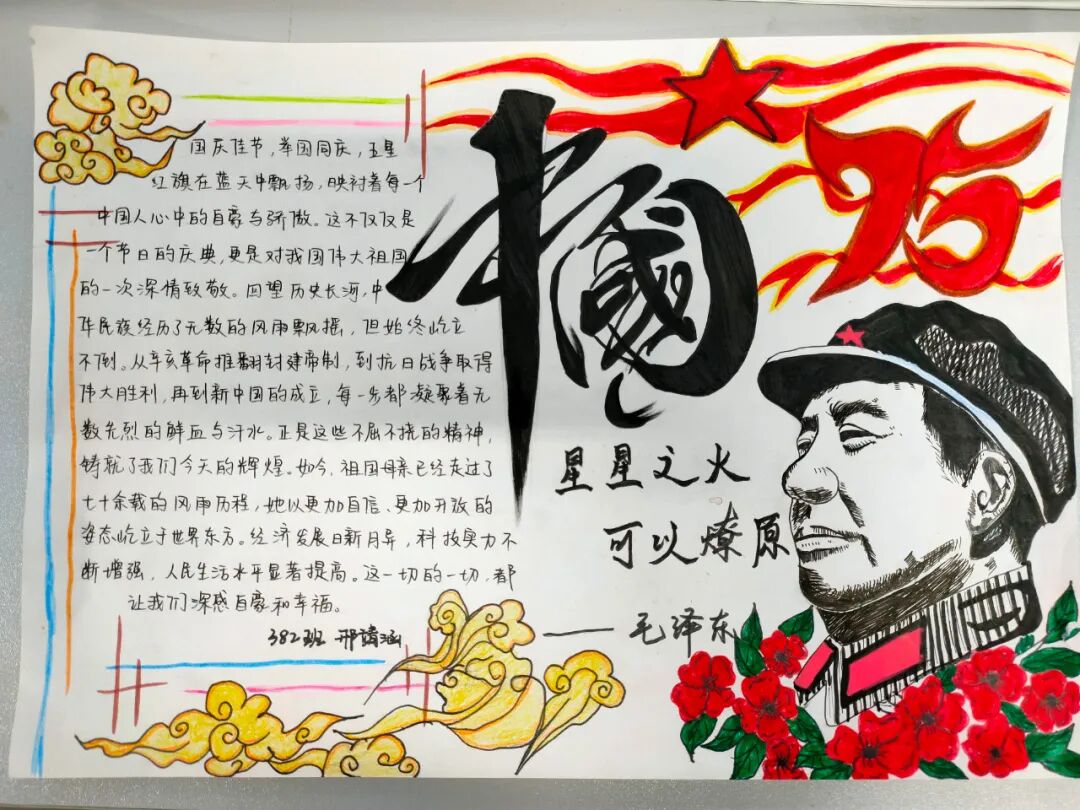 国庆佳节，举国同庆，五星
红旗在蓝天中飘扬，映衬着每一个
中国人心中的自豪与骄傲。这不仅仅是
一个节日的庆典，更是对我国伟大祖国
的一次深情致敬。回望历史长河，中
华民族经历了无数的风雨飘摇，但始终屹立
不倒。从辛亥革命推翻封建帝制，到抗日战争取得
伟大胜利，再到新中国的成立，每一步都凝聚着无
数先烈的鲜血与汗水。正是这些不屈不挠的精神，
铸就了我们今天的辉煌。如今，祖国母亲已经走过了
七十余载的风雨历程，她以更加自信、更加开放的
姿态屹立于世界东方。经济发展日新月异，科技实力不
断增强，人民生活水平显著提高。这一切的一切，都
让我们深感自豪和幸福。
382班 邢靖涵
中國
75
星星之火
可以燎原
——毛泽东